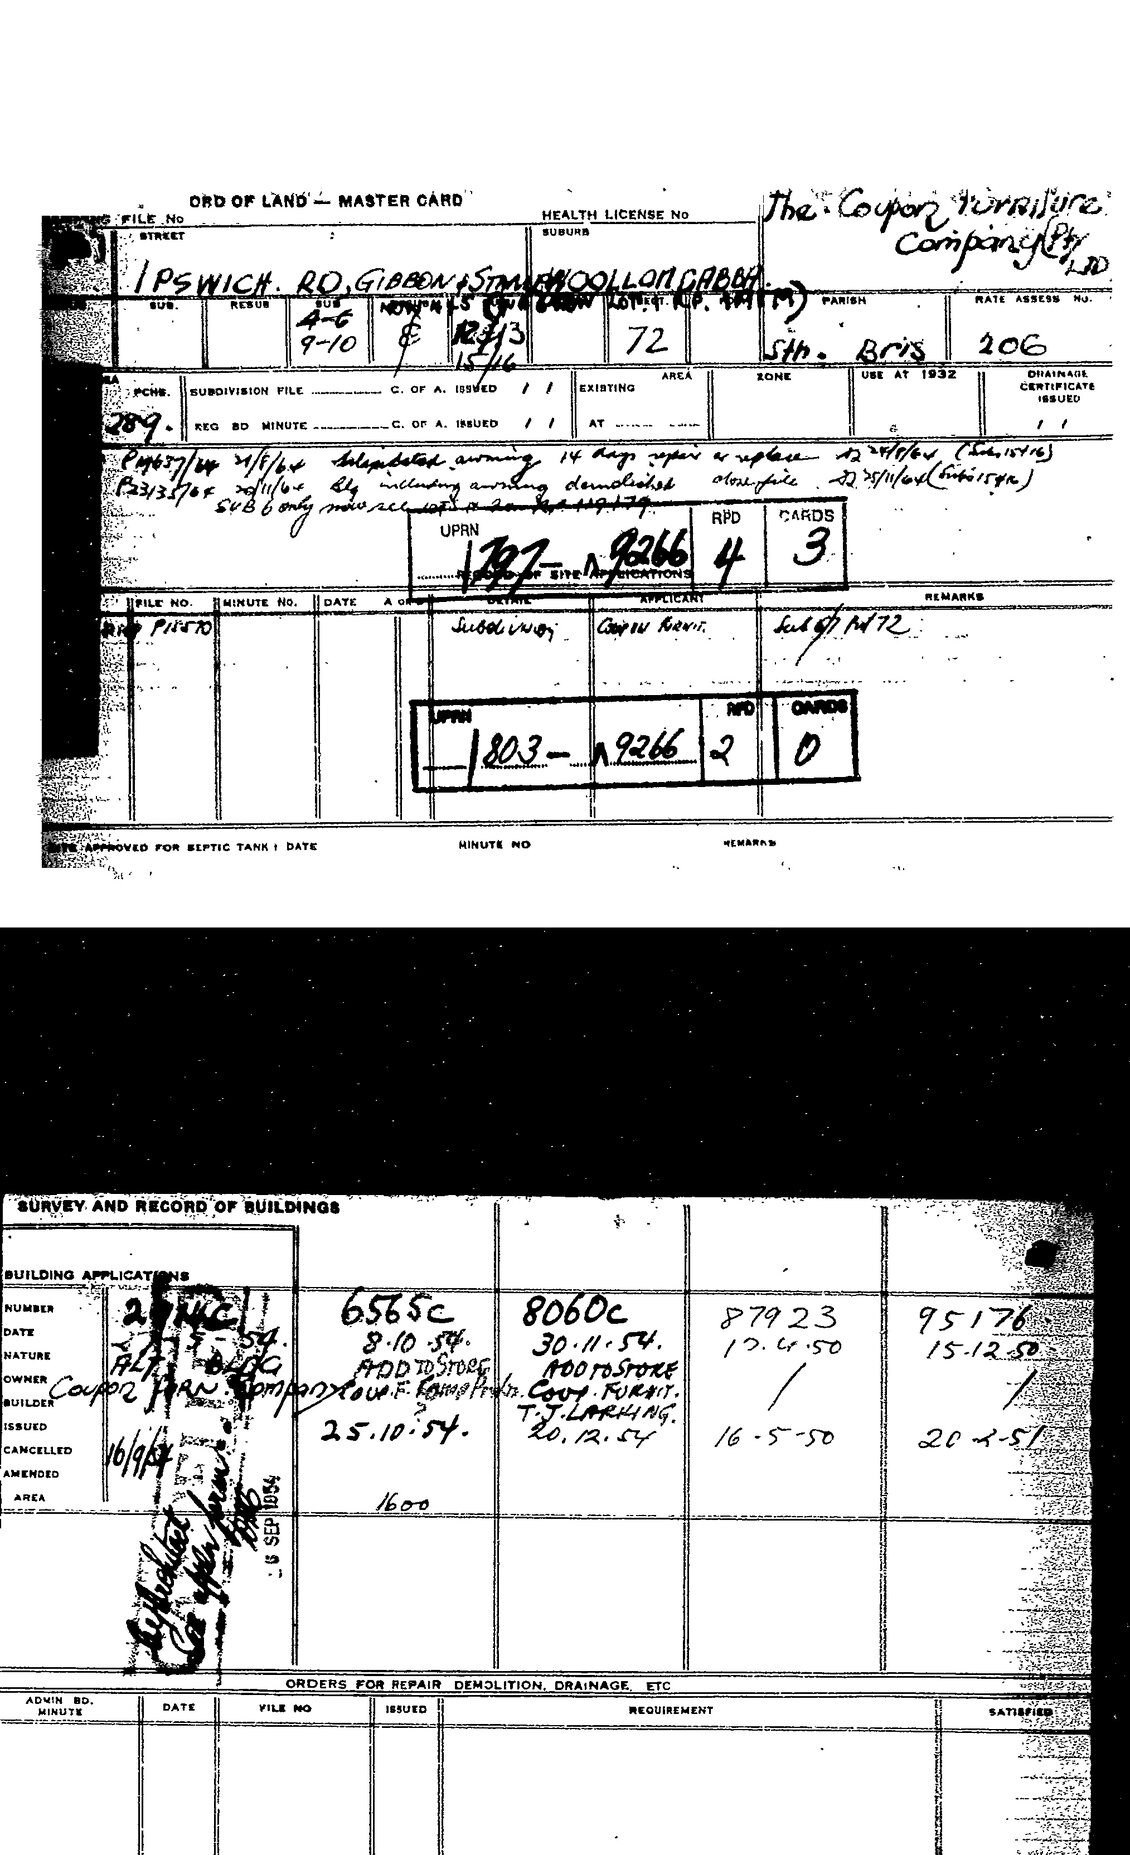 ORD OF LAND — MASTER CARD
FILE No
HEALTH LICENSE No
The Coupon Furniture
Company (Pty
LTD
STREET
SUBURB
IPSWICH. RD, GIBBON & WOOLLOONGABBA
SUB. RESUB SUB PARISH RATE ASSESS NO.
4-6
9-10 & 12/13 72 Sth. Bris 206
15/16
PCHS. SUBDIVISION FILE C. OF A. ISSUED / / EXISTING AREA ZONE USE AT 1932 DRAINAGE CERTIFICATE ISSUED
289. REG BD MINUTE C. OF A. ISSUED / / AT / /
21/8/64 awning 14 days repair or replace 24/8/64 (Subs 15+16)
P23135/64 20/11/64 Blg including awning demolished close file. 25/11/64 (Subs 15+16)
SUB 6 only now see
UPRN RPD CARDS
1797 - 9266 4 3
RECORD OF SITE APPLICATIONS
FILE NO. MINUTE NO. DATE DETAIL APPLICANT REMARKS
P15570 Subdivision COUPON FURNIT. 72
UPRN RPD CARDS
1803 - 9266 2 0
APPROVED FOR SEPTIC TANK : DATE MINUTE NO REMARKS
SURVEY AND RECORD OF BUILDINGS
BUILDING APPLICATIONS
NUMBER 6565C 8060C 87923 95176
DATE 54. 8.10.54. 30.11.54. 17.4.50 15.12.50
NATURE ALT BLDG ADD TO STORE ADD TO STORE / /
OWNER Coupon FURN. Company Coup. F. Coup. FURNIT.
BUILDER T. J. LARKING.
ISSUED 25.10.54. 20.12.54 16-5-50 20-2-51
CANCELLED 16/9/54
AMENDED
AREA 1600
SEP 1954
ORDERS FOR REPAIR DEMOLITION, DRAINAGE, ETC
ADMIN BD. MINUTE DATE FILE NO ISSUED REQUIREMENT SATISFIED